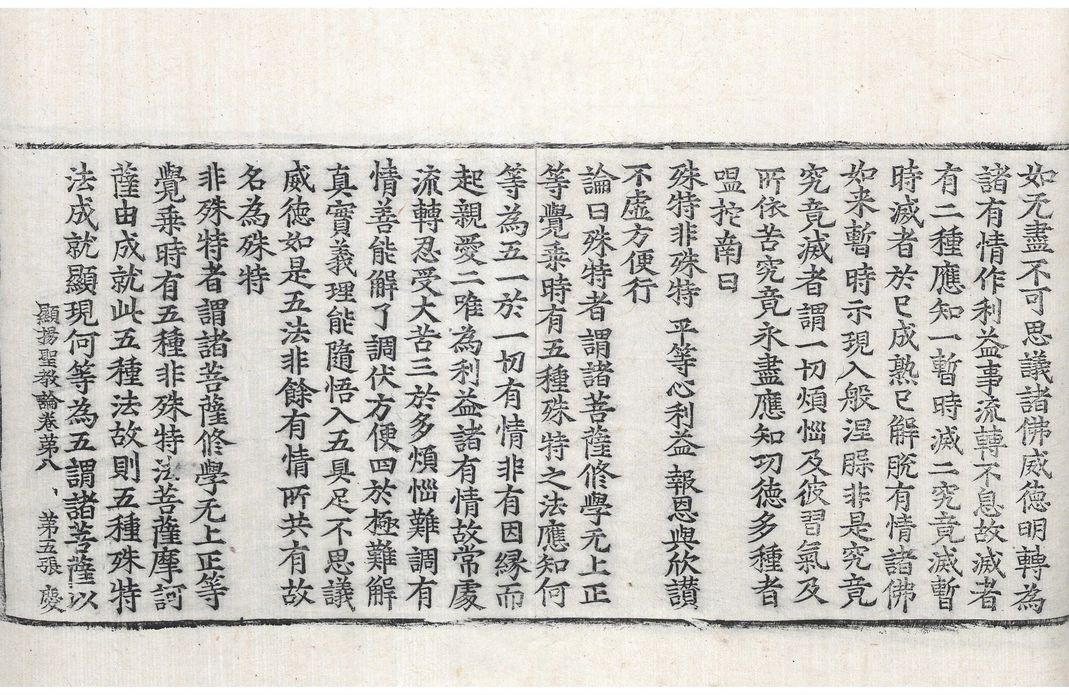 如无盡不可思議諸佛威德明轉為
諸有情作利益事流轉不息故滅者
有二種應知一暫時滅二究竟滅暫
時滅者於已成熟已解脫有情諸佛
如来暫時示現入般涅槃非是究竟
究竟滅者謂一切煩惱及彼習氣及
所依苦究竟永盡應知功德多種者
嗢拕南曰
殊特非殊特 平等心利益 報恩與欣讚
不虛方便行
論曰殊特者謂諸菩薩修學无上正
等覺乗時有五種殊特之法應知何
等為五一於一切有情非有因縁而
起親愛二唯為利益諸有情故常處
流轉忍受大苦三於多煩惱難調有
情善能解了調伏方便四於極難解
真實義理能隨悟入五具足不思議
威德如是五法非餘有情所共有故
名為殊特
非殊特者謂諸菩薩修學无上正等
覺乗時有五種非殊特法菩薩摩訶
薩由成就此五種法故則五種殊特
法成就顯現何等為五謂諸菩薩以
顯揚聖教論卷第八 第五張 慶